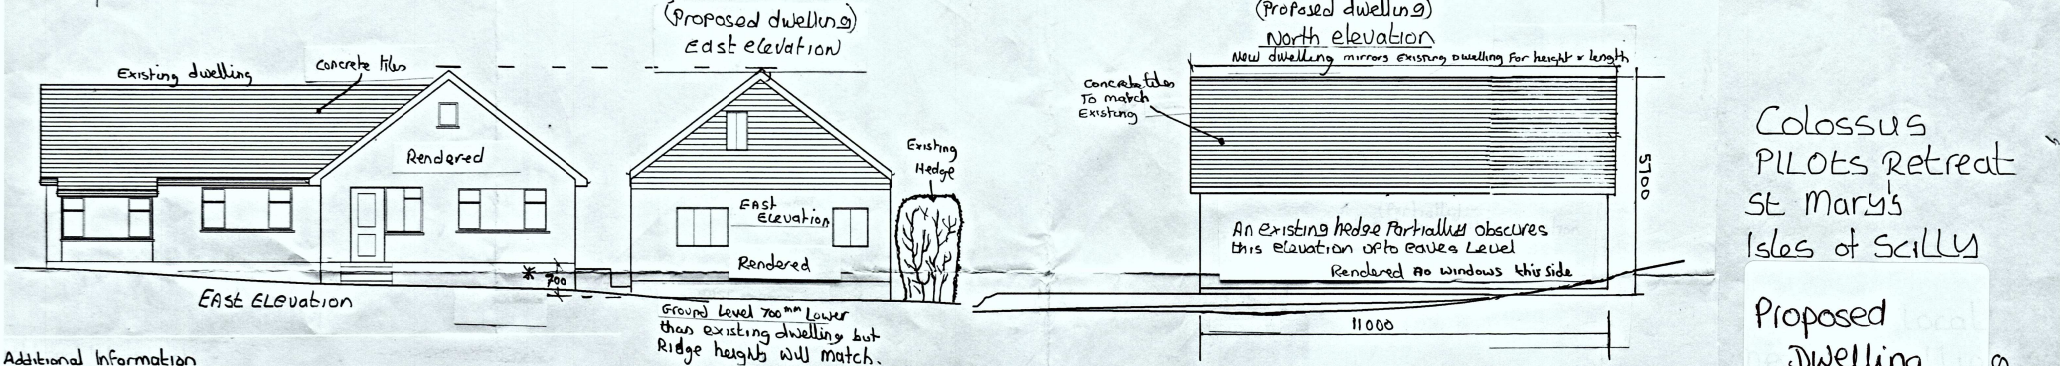 Existing dwelling
Concrete tiles
Rendered
EAST ELEVATION
* 700
(Proposed dwelling)
East elevation
EAST
ELEVATION
Rendered
Existing
Hedge
Ground Level 700mm Lower
than existing dwelling but
Ridge heights will match.
(Proposed dwelling)
North elevation
New dwelling mirrors existing dwelling for height & length
Concrete tiles
To match
Existing
An existing hedge partially obscures
this elevation upto eaves level
Rendered no windows this side
5700
11000
Colossus
PILOTs Retreat
St Mary's
Isles of Scilly
Proposed
Dwelling
Additional Information